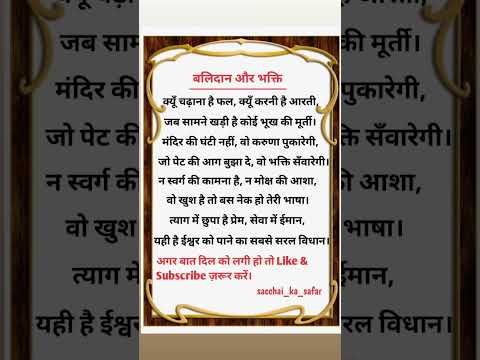 बलिदान और भक्ति
क्यूँ चढ़ाना है फल, क्यूँ करनी है आरती,
जब सामने खड़ी है कोई भूख की मूर्ती।
मंदिर की घंटी नहीं, वो करुणा पुकारेगी,
जो पेट की आग बुझा दे, वो भक्ति सँवारेगी।
न स्वर्ग की कामना है, न मोक्ष की आशा,
वो खुश है तो बस नेक हो तेरी भाषा।
त्याग में छुपा है प्रेम, सेवा में ईमान,
यही है ईश्वर को पाने का सबसे सरल विधान।
अगर बात दिल को लगी हो तो Like &
Subscribe ज़रूर करें।
sacchai_ka_safar